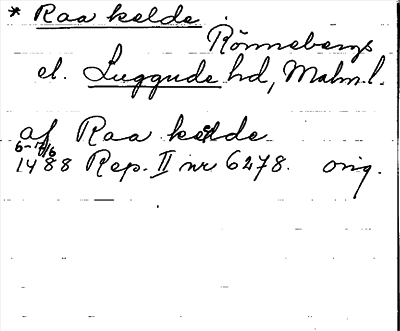 * Raa kelde
Rönnebergs
el. Luggude hd, Malm. l.
af Raa kelde
6-17/6
1488 Rep. II nr 6278. orig.